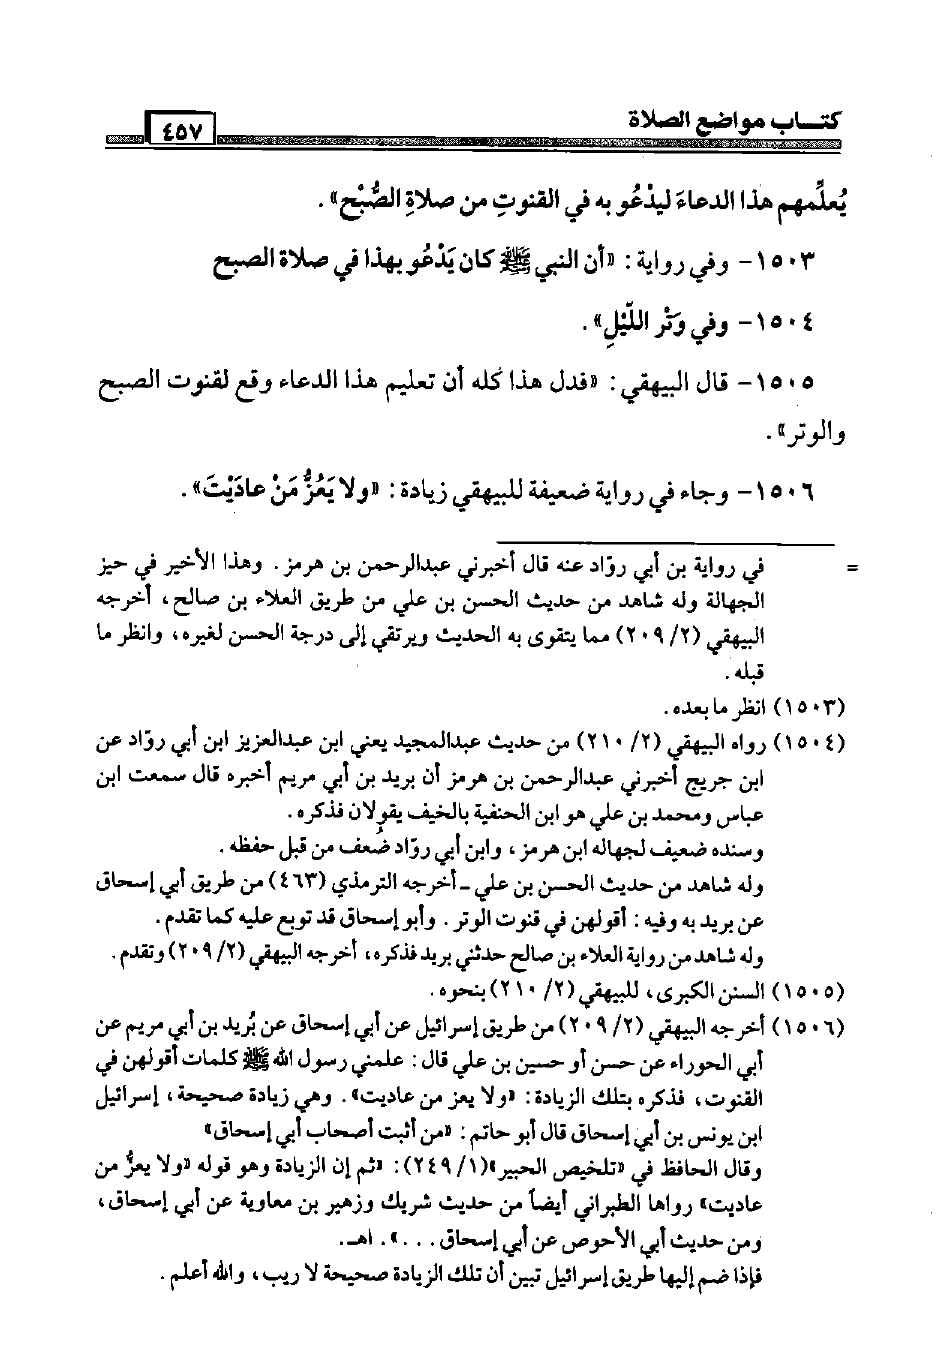 كتـــاب مواضع الصلاة
٤٥٧
يُعلِّمهم هذا الدعاءَ ليدْعُو به في القنوتِ من صلاةِ الصُّبْحِ» .
١٥٠٣- وفي رواية : «أن النبي ﷺ كان يَدْعُو بهذا في صلاة الصبح
١٥٠٤- وفي وَتْر اللَّيْلِ» .
١٥٠٥- قال البيهقي : «فدل هذا كله أن تعليم هذا الدعاء وقع لقنوت الصبح
والوتر» .
١٥٠٦- وجاء في رواية ضعيفة للبيهقي زيادة : «ولا يَعُزُّ مَنْ عادَيْتَ» .
= في رواية بن أبي روّاد عنه قال أخبرني عبدالرحمن بن هرمز . وهذا الأخير في حيز
الجهالة وله شاهد من حديث الحسن بن علي من طريق العلاء بن صالح ، أخرجه
البيهقي (٢/ ٢٠٩) مما يتقوى به الحديث ويرتقي إلى درجة الحسن لغيره، وانظر ما
قبله .
(١٥٠٣) انظر ما بعده .
(١٥٠٤) رواه البيهقي (٢/ ٢١٠) من حديث عبدالمجيد يعني ابن عبدالعزيز ابن أبي روّاد عن
ابن جريج أخبرني عبدالرحمن بن هرمز أن بريد بن أبي مريم أخبره قال سمعت ابن
عباس ومحمد بن علي هو ابن الحنفية بالخيف يقولان فذكره .
وسنده ضعيف لجهاله ابن هرمز ، وابن أبي روّاد ضُعف من قبل حفظه .
وله شاهد من حديث الحسن بن علي ـ أخرجه الترمذي (٤٦٣) من طريق أبي إسحاق
عن بريد به وفيه : أقولهن في قنوت الوتر . وأبو إسحاق قد توبع عليه كما تقدم .
وله شاهد من رواية العلاء بن صالح حدثني بريد فذكره، أخرجه البيهقي (٢/ ٢٠٩) وتقدم .
(١٥٠٥) السنن الكبرى ، للبيهقي (٢/ ٢١٠) بنحوه .
(١٥٠٦) أخرجه البيهقي (٢/ ٢٠٩) من طريق إسرائيل عن أبي إسحاق عن بُريد بن أبي مريم عن
أبي الحوراء عن حسن أو حسين بن علي قال : علمني رسول الله ﷺ كلمات أقولهن في
القنوت ، فذكره بتلك الزيادة : «ولا يعز من عاديت» . وهي زيادة صحيحة ، إسرائيل
ابن يونس بن أبي إسحاق قال أبو حاتم : «من أثبت أصحاب أبي إسحاق»
وقال الحافظ في «تلخيص الحبير»(١/ ٢٤٩): «ثم إن الزيادة وهو قوله «ولا يعزُّ من
عاديت» رواها الطبراني أيضاً من حديث شريك وزهير بن معاوية عن أبي إسحاق ،
ومن حديث أبي الأحوص عن أبي إسحاق . . .» . اهـ .
فإذا ضم إليها طريق إسرائيل تبين أن تلك الزيادة صحيحة لا ريب ، والله أعلم .